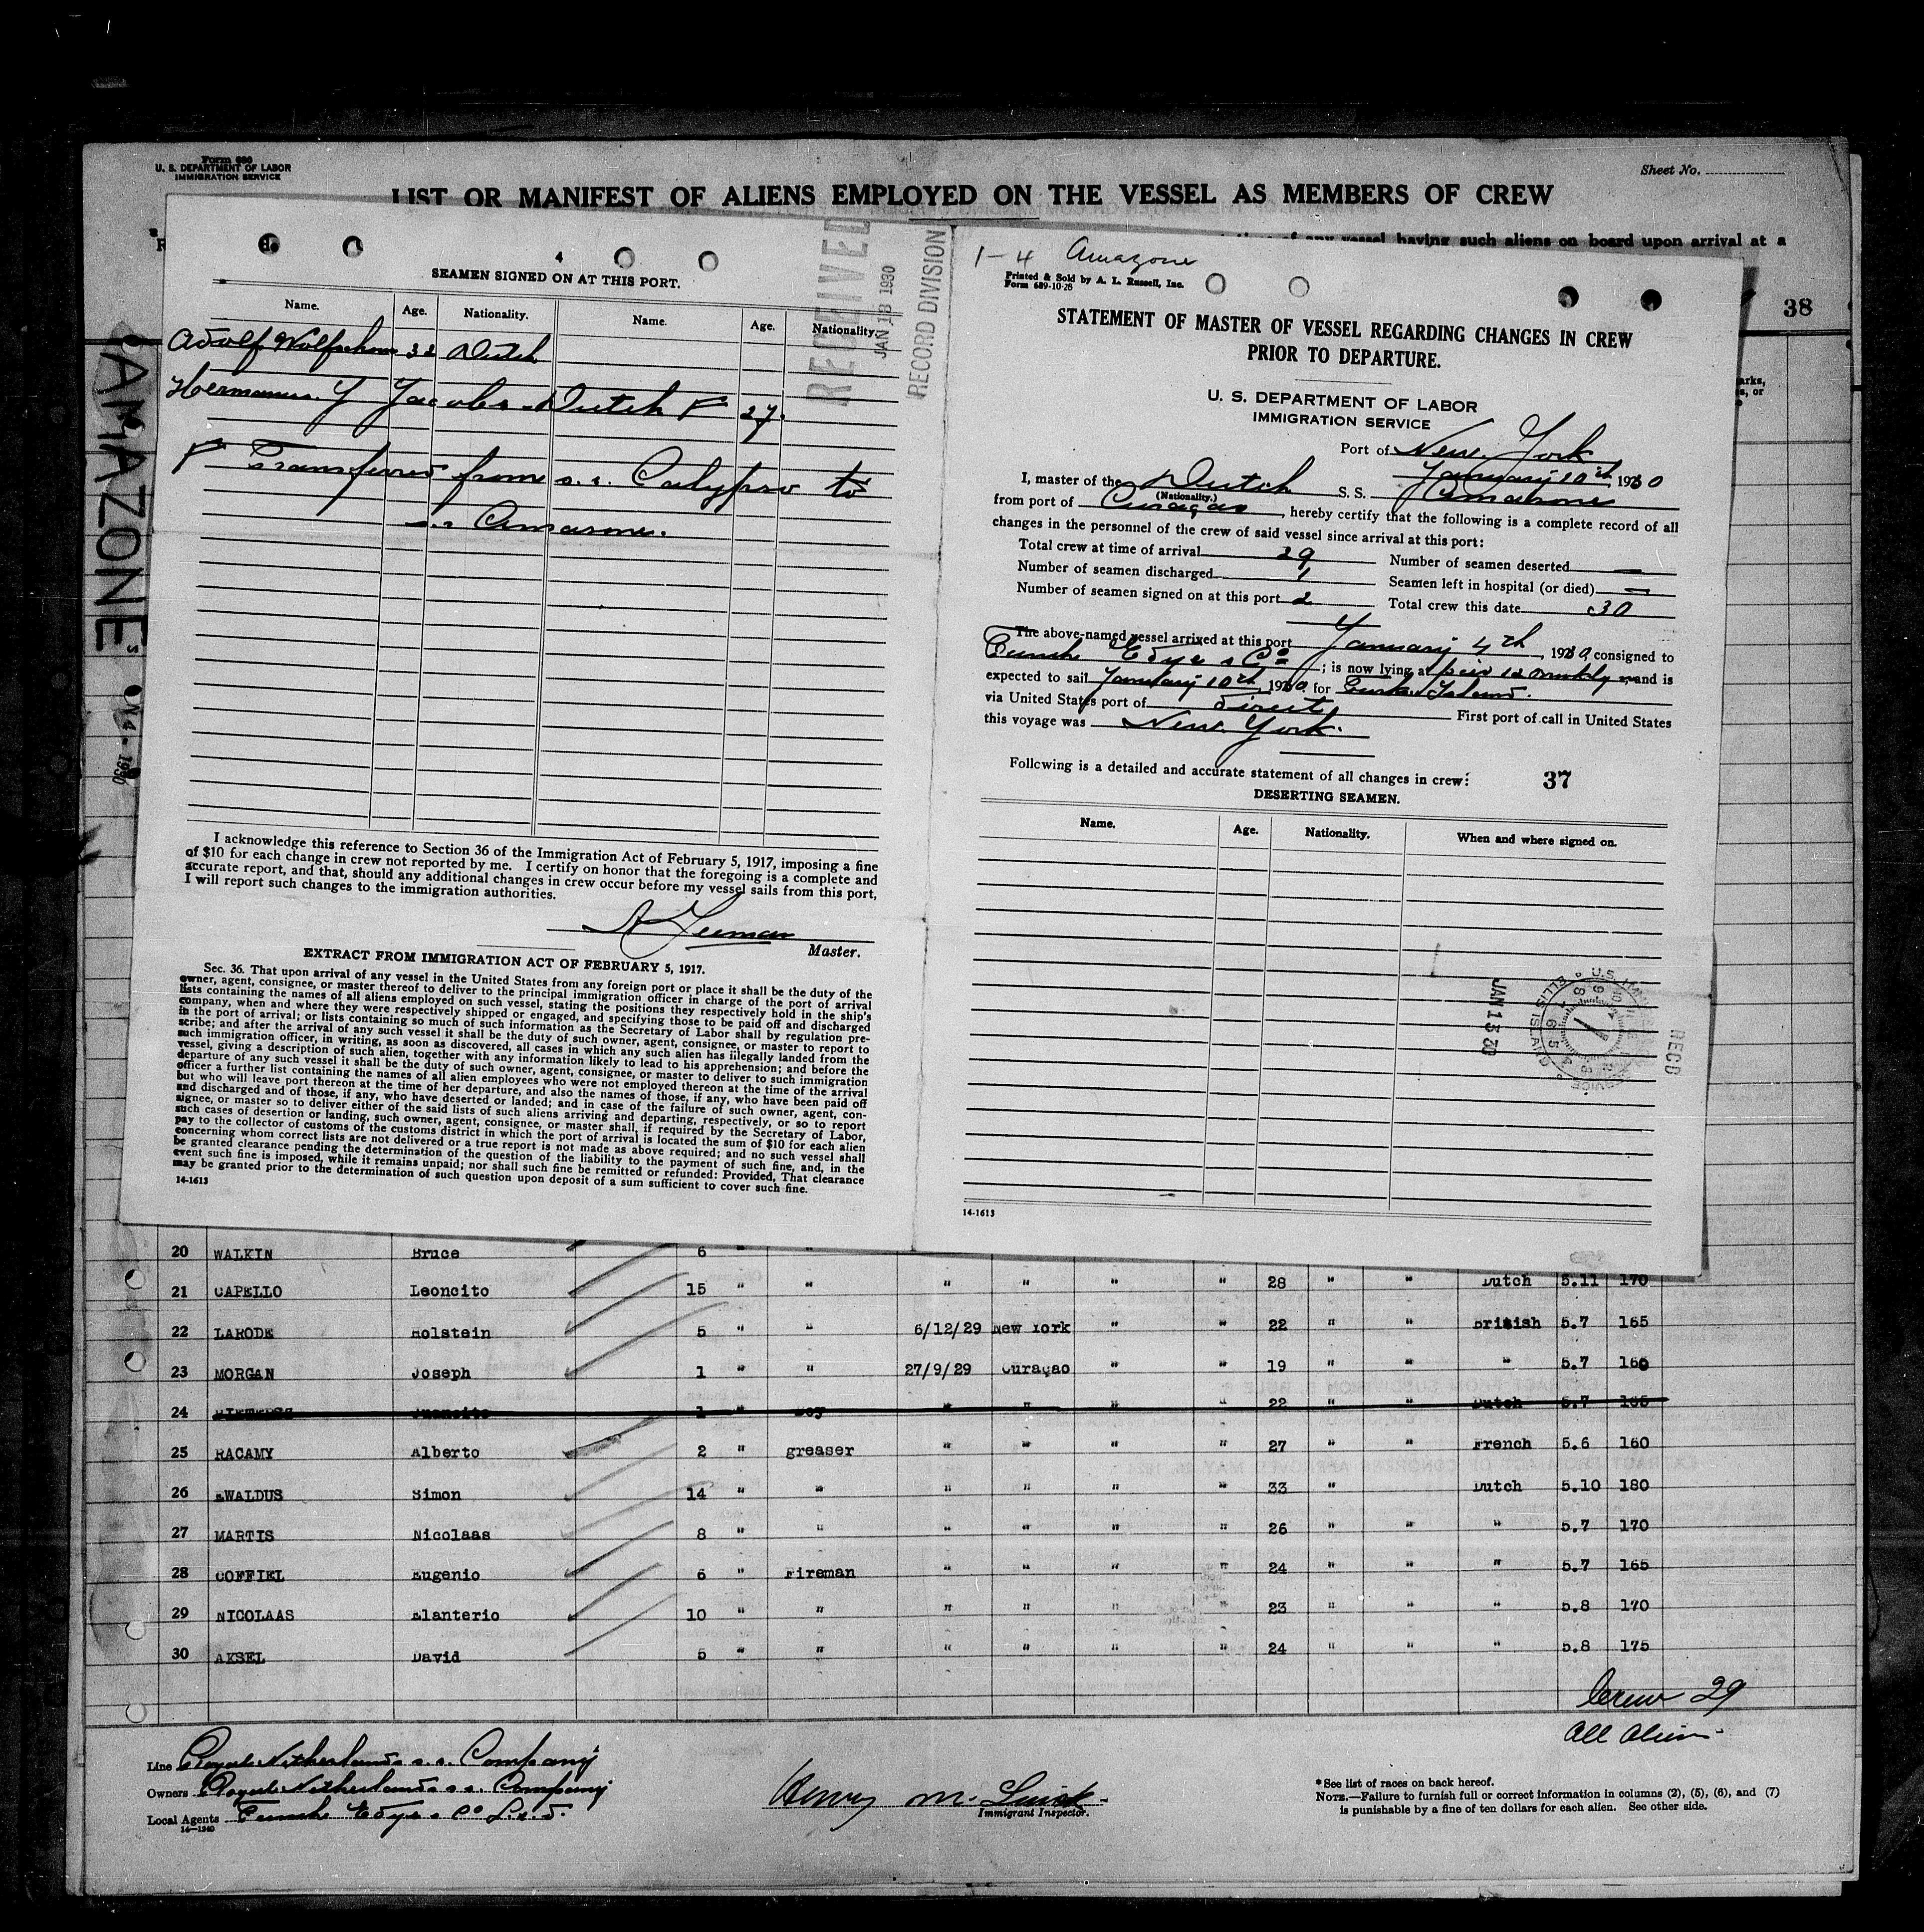 Form 680
U. S. DEPARTMENT OF LABOR
IMMIGRATION SERVICE
Sheet No.
LIST OR MANIFEST OF ALIENS EMPLOYED ON THE VESSEL AS MEMBERS OF CREW
of any vessel having such aliens on board upon arrival at a
38
AMAZONE
4
SEAMEN SIGNED ON AT THIS PORT.
RECEIVED
JAN 13 1930
RECORD DIVISION
Name. Age. Nationality. Name. Age. Nationality.
Adolf 32 Dutch
Hermanus J Jacobs Dutch 27.
Transferred from s.s. Calypso to
s.s. Amazone.
I acknowledge this reference to Section 36 of the Immigration Act of February 5, 1917, imposing a fine
of $10 for each change in crew not reported by me. I certify on honor that the foregoing is a complete and
accurate report, and that, should any additional changes in crew occur before my vessel sails from this port,
I will report such changes to the immigration authorities.
Master.
EXTRACT FROM IMMIGRATION ACT OF FEBRUARY 5, 1917.
Sec. 36. That upon arrival of any vessel in the United States from any foreign port or place it shall be the duty of the
owner, agent, consignee, or master thereof to deliver to the principal immigration officer in charge of the port of arrival
lists containing the names of all aliens employed on such vessel, stating the positions they respectively hold in the ship's
company, when and where they were respectively shipped or engaged, and specifying those to be paid off and discharged
in the port of arrival; or lists containing so much of such information as the Secretary of Labor shall by regulation pre-
scribe; and after the arrival of any such vessel it shall be the duty of such owner, agent, consignee, or master to report to
such immigration officer, in writing, as soon as discovered, all cases in which any such alien has illegally landed from the
vessel, giving a description of such alien, together with any information likely to lead to his apprehension; and before the
departure of any such vessel it shall be the duty of such owner, agent, consignee, or master to deliver to such immigration
officer a further list containing the names of all alien employees who were not employed thereon at the time of the arrival
but who will leave port thereon at the time of her departure, and also the names of those, if any, who have been paid off
and discharged and of those, if any, who have deserted or landed; and in case of the failure of such owner, agent, con-
signee, or master so to deliver either of the said lists of such aliens arriving and departing, respectively, or so to report
such cases of desertion or landing, such owner, agent, consignee, or master shall, if required by the Secretary of Labor,
pay to the collector of customs of the customs district in which the port of arrival is located the sum of $10 for each alien
concerning whom correct lists are not delivered or a true report is not made as above required; and no such vessel shall
be granted clearance pending the determination of the question of the liability to the payment of such fine, and, in the
event such fine is imposed, while it remains unpaid; nor shall such fine be remitted or refunded: Provided, That clearance
may be granted prior to the determination of such question upon deposit of a sum sufficient to cover such fine.
14-1613
1-4 Amazone
Printed & Sold by A. L. Russell, Inc.
Form 689-10-28
STATEMENT OF MASTER OF VESSEL REGARDING CHANGES IN CREW
PRIOR TO DEPARTURE.
U. S. DEPARTMENT OF LABOR
IMMIGRATION SERVICE
Port of New York
January 10th, 1930
I, master of the Dutch S. S. Amazone
(Nationality.)
from port of Curaçao, hereby certify that the following is a complete record of all
changes in the personnel of the crew of said vessel since arrival at this port:
Total crew at time of arrival 29 Number of seamen deserted —
Number of seamen discharged 1 Seamen left in hospital (or died) —
Number of seamen signed on at this port 2 Total crew this date 30
The above-named vessel arrived at this port January 4th, 1930, consigned to
Funch Edye & Co; is now lying at pier and is
expected to sail January 10th, 1930 for Turks Island.
via United States port of direct First port of call in United States
this voyage was New York.
Following is a detailed and accurate statement of all changes in crew: 37
DESERTING SEAMEN.
Name. Age. Nationality. When and where signed on.
JAN 13 30
REC'D
14-1613
20 WALKIN Bruce 6 " "
21 CAPELLO Leoncito 15 " " " " " " 28 " " Dutch 5.11 170
22 LARODE Holstein 5 " " 6/12/29 New York " " 22 " " British 5.7 165
23 MORGAN Joseph 1 " " 27/9/29 Curaçao " " 19 " " " 5.7 160
24 1 " Boy " " " " 22 " " Dutch 5.7 165
25 RACAMY Alberto 2 " greaser " " " " 27 " " French 5.6 160
26 EWALDUS Simon 14 " " " " " " 33 " Dutch 5.10 180
27 MARTIS Nicolaas 8 " " " " " " 26 " " " 5.7 170
28 COFFIEL Eugenio 6 " Fireman " " " " 24 " " " 5.7 165
29 NICOLAAS Elanterio 10 " " " " " " 23 " " " 5.8 170
30 AKSEL David 5 " " " " " " 24 " " " 5.8 175
Crew 29
All Alien
Line Royal Netherlands s.s. Company
Owners Royal Netherlands s.s. Company
Local Agents Funch Edye & Co
14-1240
Henry M.
Immigrant Inspector.
* See list of races on back hereof.
NOTE.—Failure to furnish full or correct information in columns (2), (5), (6), and (7)
is punishable by a fine of ten dollars for each alien. See other side.